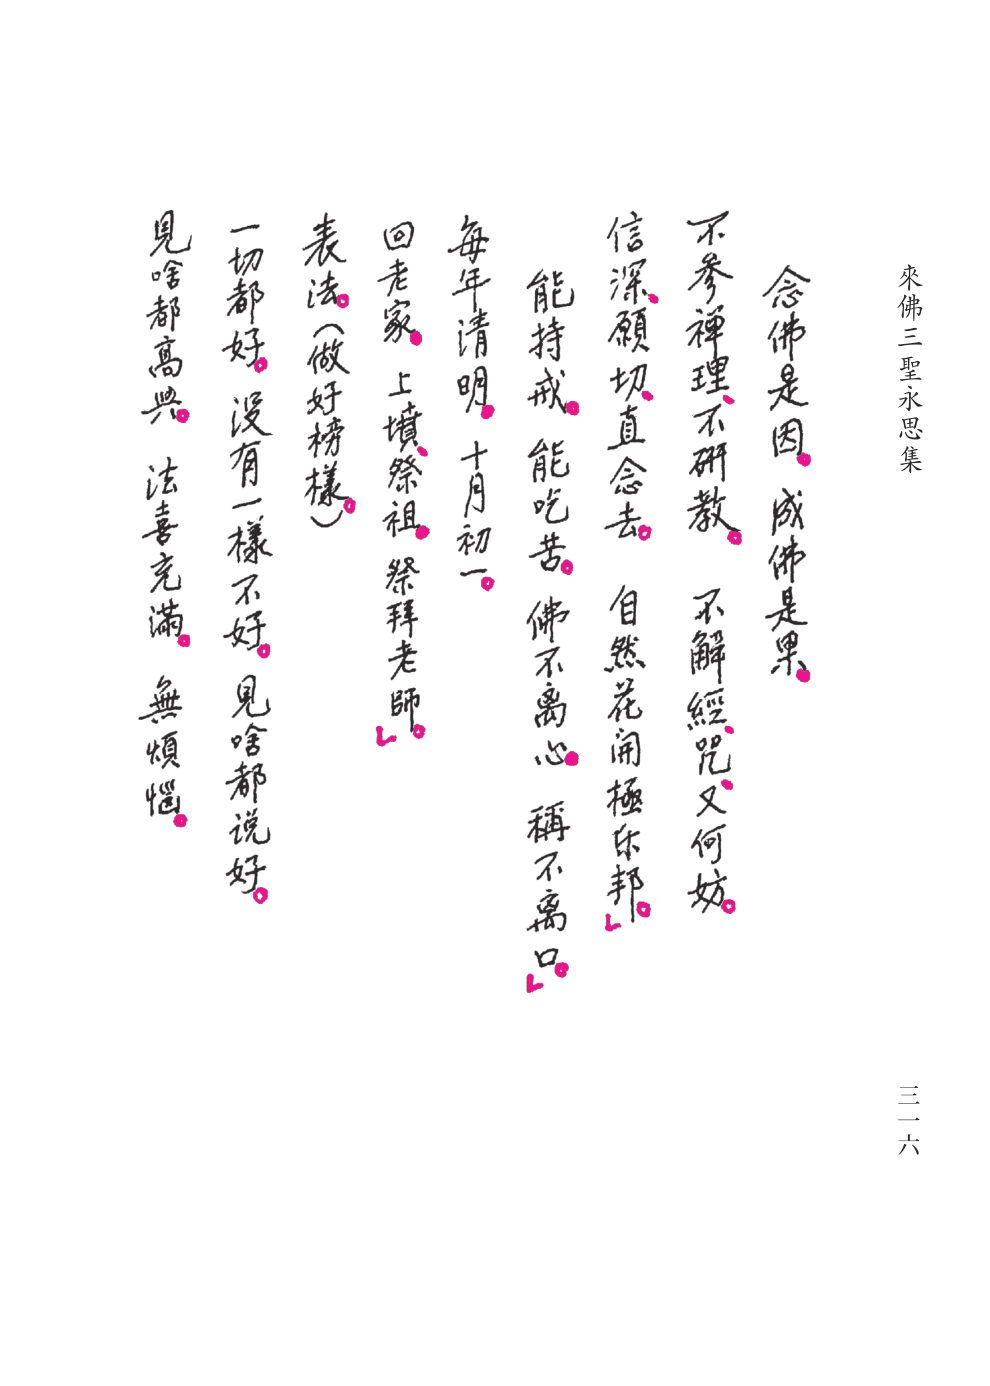 來佛三聖永思集
念佛是因。成佛是果。
不參禪理、不研教。不解經、咒、又何妨。
信深、願切、直念去。自然花開極乐邦。」
能持戒。能吃苦。佛不离心。稱不离口。」
每年清明。十月初一。
回老家。上墳、祭祖。祭拜老師。」
表法。（做好榜樣。）
一切都好。没有一樣不好。見啥都说好。
見啥都高興。法喜充滿。無煩惱。
三一六